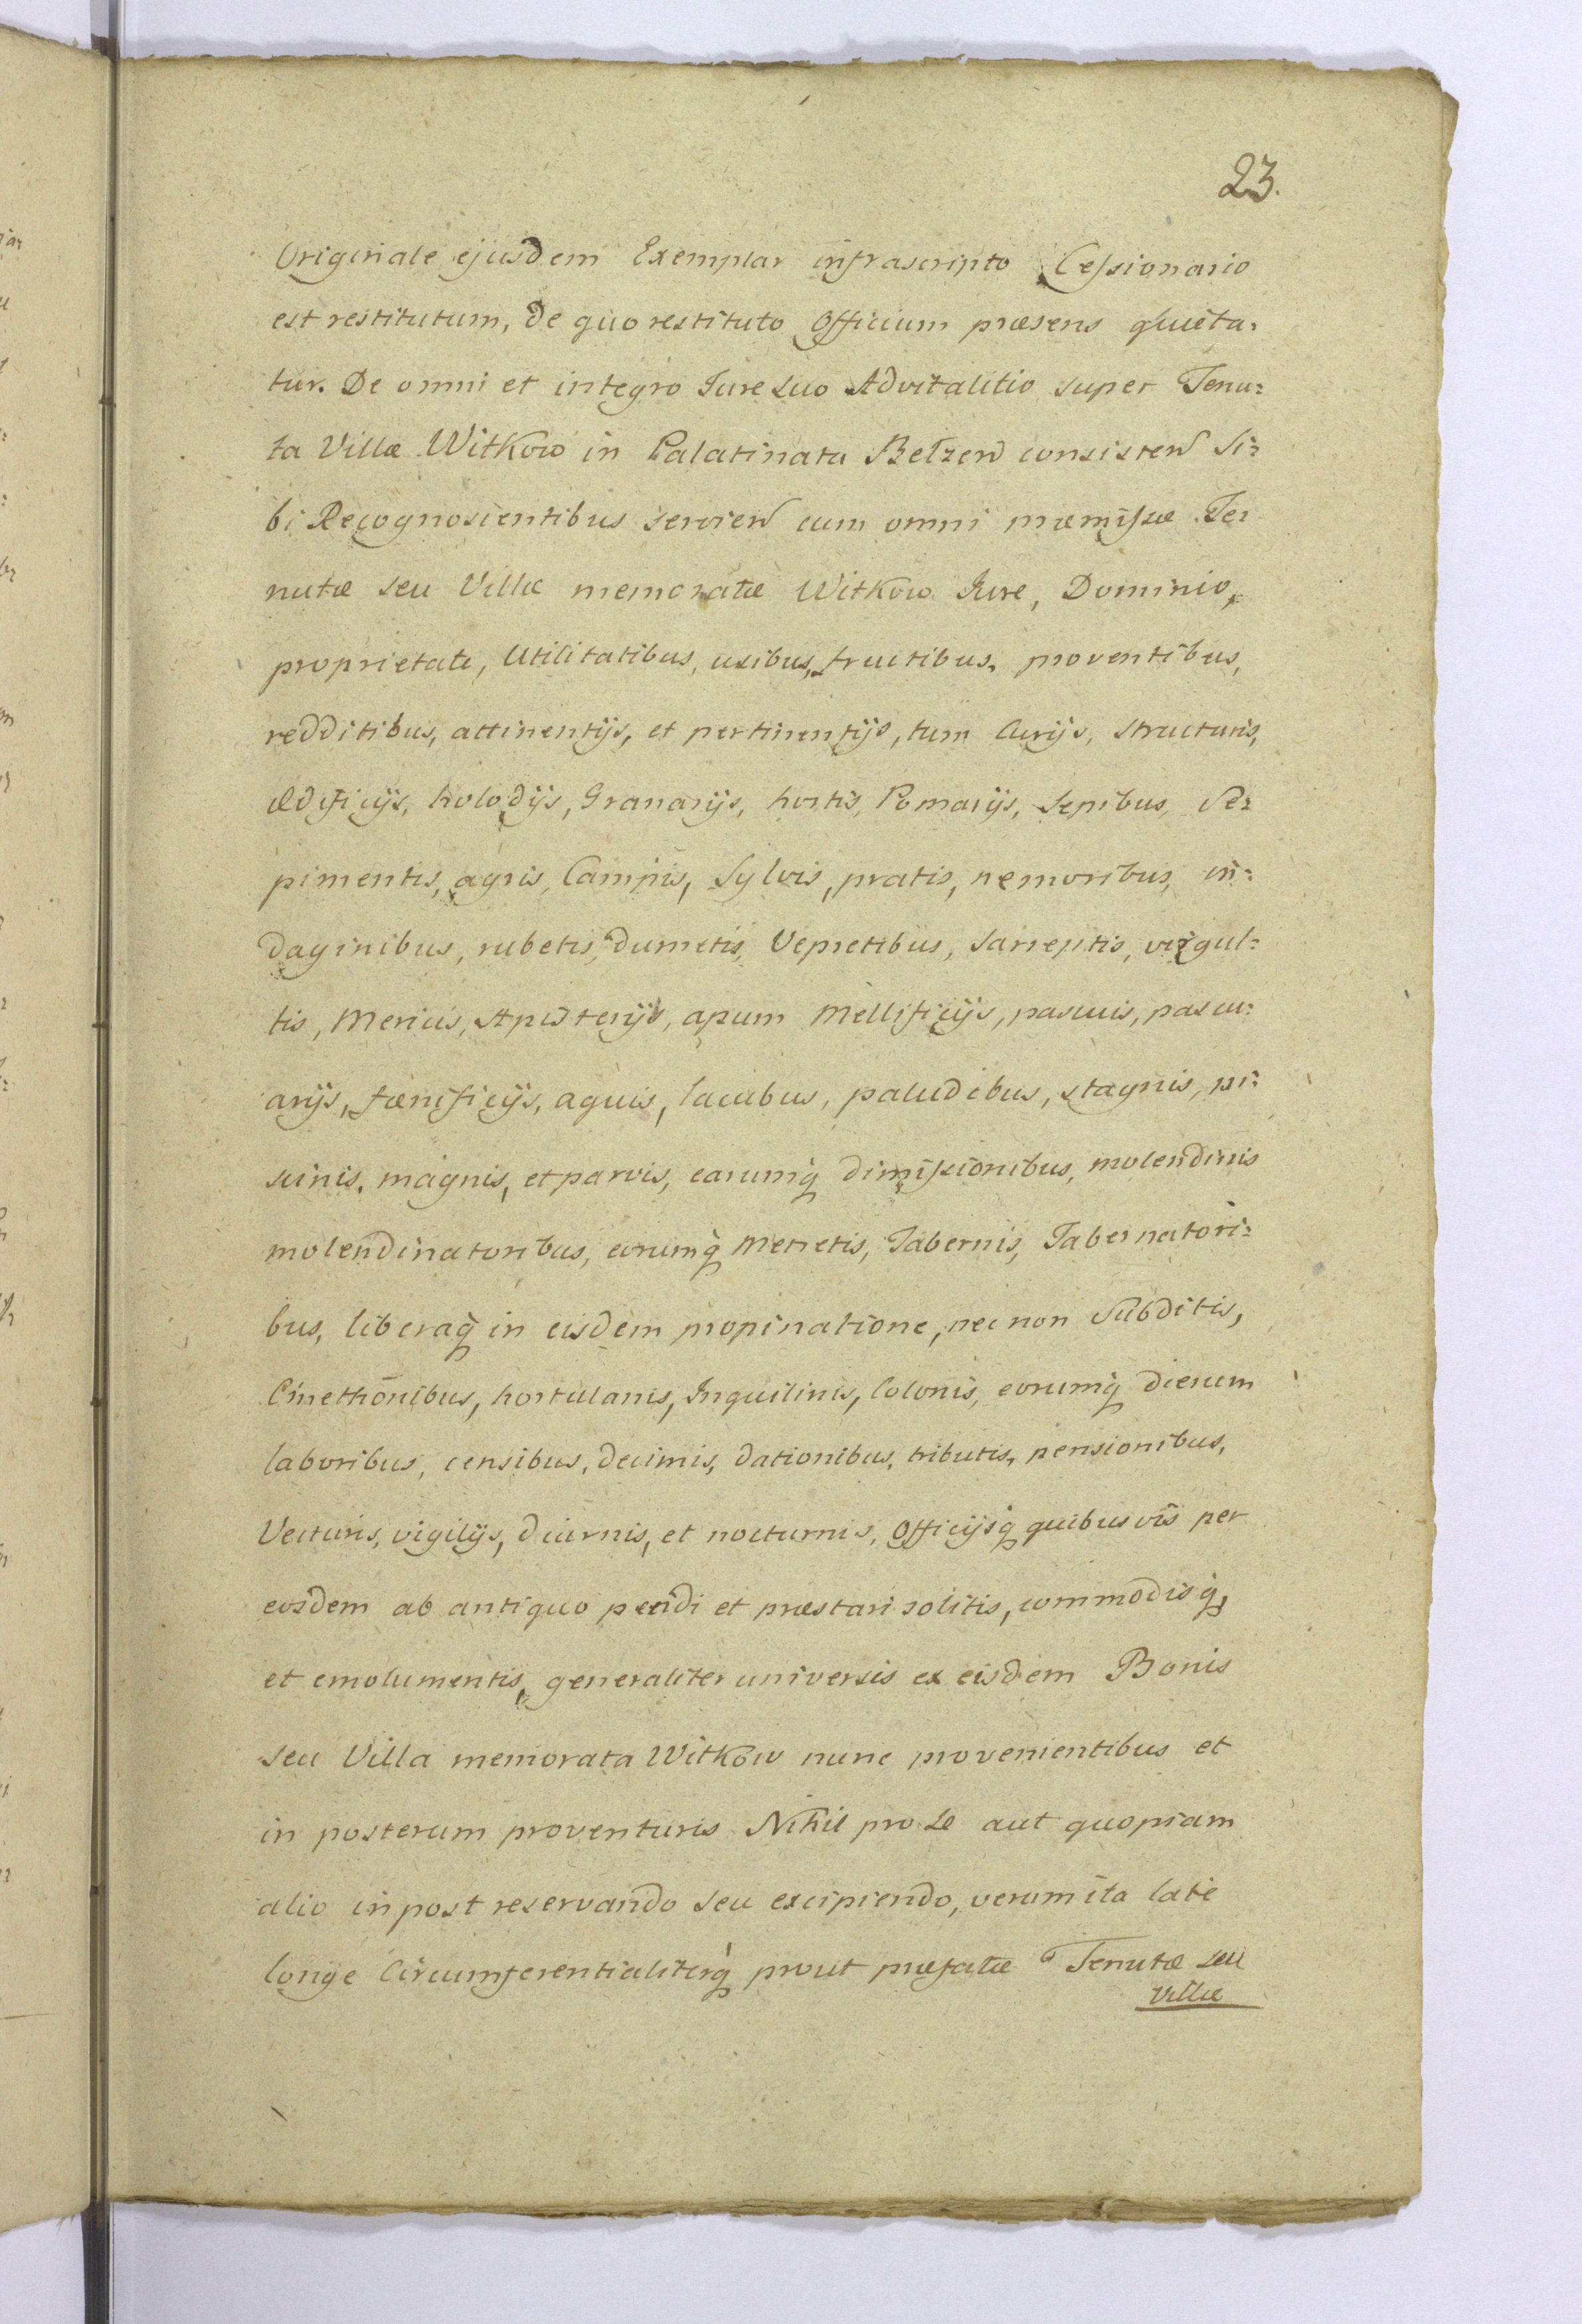 23.
Originale ejusdem Exemplar infrascripto Cessionario
est restitutum, de quo restituto Officium præsens quieta-
tur. De omni et integro Jure suo Advitalitio super Tenu=
ta Villæ Witkow in Palatinatu Belzen consisten Si=
bi Recognoscientibus servien cum omni præmissæ Te=
nutæ seu Villæ memoratæ Witkow Jure, Dominio,
proprietate, Utilitatibus, usibus, fructibus, proventibus,
redditibus, attinentijs, et pertinentijs, tum Curijs, structuris,
ædificijs, holodijs, Granarijs, hortis, Pomarijs, Sepibus, Se=
pimentis, agris, Campis, Sylvis, pratis, nemoribus, in=
daginibus, rubetis, dumetis, Vepretibus, sarreptis, virgul=
tis, Mericis, Apisterijs, apum Mellificijs, pascuis, pascu=
arijs, fænificijs, aquis, lacubus, paludibus, stagnis, pi=
scinis, magnis, et parvis, earumq́ dimissionibus, molendinis
molendinatoribus, eorumq́ Metretis, Tabernis, Tabernatori=
bus, liberaq́ in eisdem propinatione, nec non Subditis,
Cmethonibus, hortulanis, Inquilinis, Colonis, eorumq́ dierum
laboribus, censibus, decimis, dationibus, tributis, pensionibus,
Vecturis, vigilijs, diurnis, et nocturnis, Officijsq́ quibusvis per
eosdem ab antiquo pendi et præstari solitis, commodisq́,
et emolumentis, generaliter universis ex eisdem Bonis
seu Villa memorata Witkow nunc provenientibus et
in posterum proventuris Nihil pro se aut quopiam
alio inpost reservando seu excipiendo, verum ita late
longe Circumferentialiterq́ prout præfatæ Tenutæ seu
Villæ